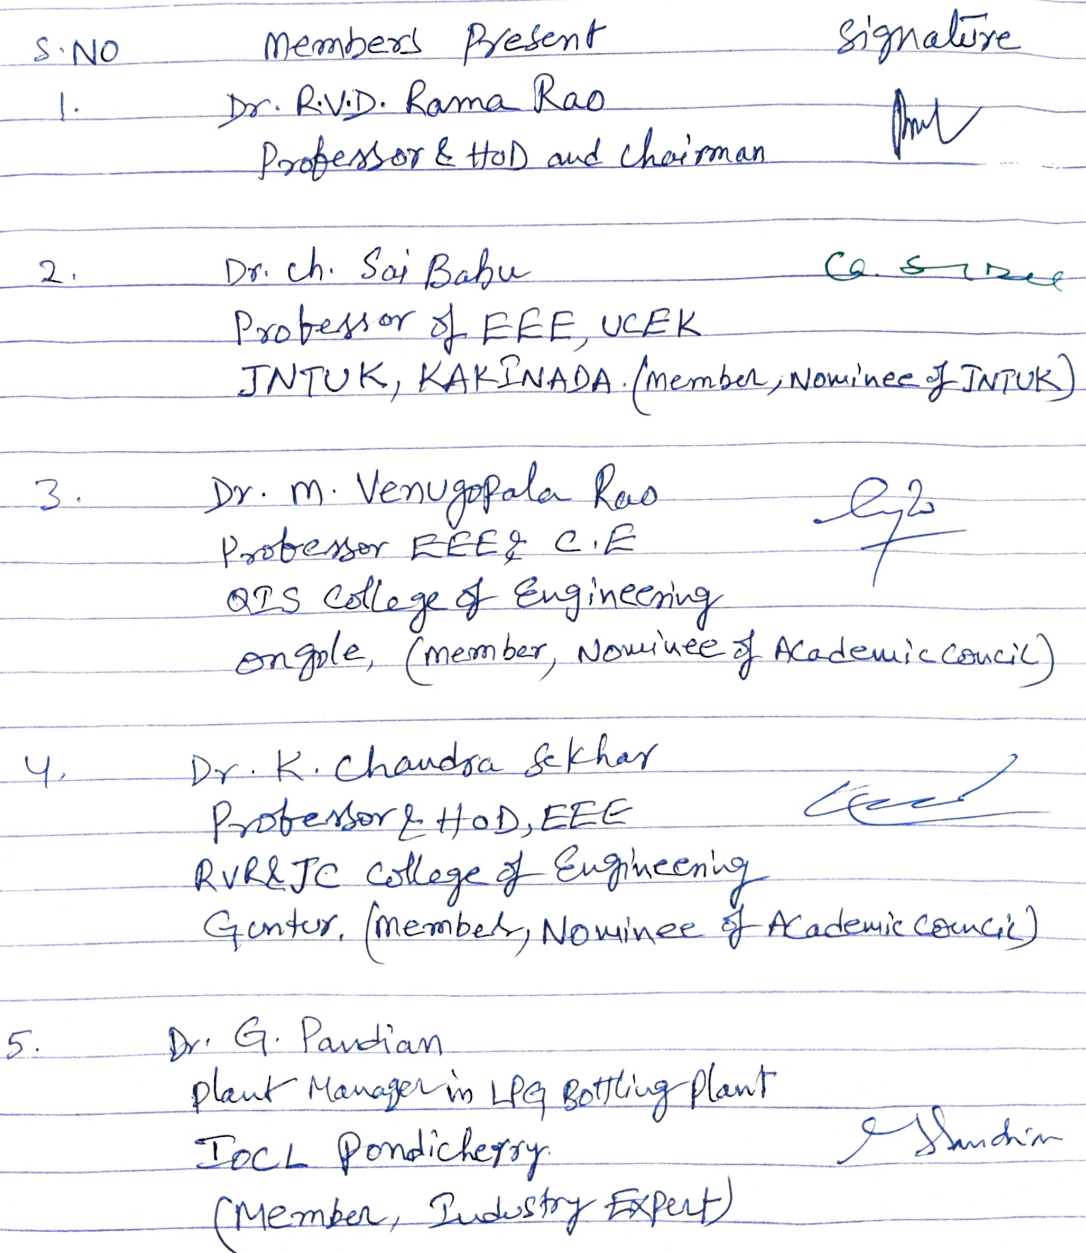 S.NO Members Present Signature
1. Dr. R.V.D. Rama Rao
Professor & HoD and Chairman
2. Dr. Ch. Sai Babu
Professor of EEE, UCEK
JNTUK, KAKINADA. (Member, Nominee of JNTUK)
3. Dr. M. Venugopala Rao
Professor EEE & C.E
QIS College of Engineering
Ongole, (Member, Nominee of Academic Concil)
4. Dr. K. Chandra Sekhar
Professor & HoD, EEE
RVR&JC College of Engineering
Guntur. (Member, Nominee of Academic Council)
5. Dr. G. Pandian
Plant Manager in LPG Bottling Plant
IOCL Pondicherry.
(Member, Industry Expert)